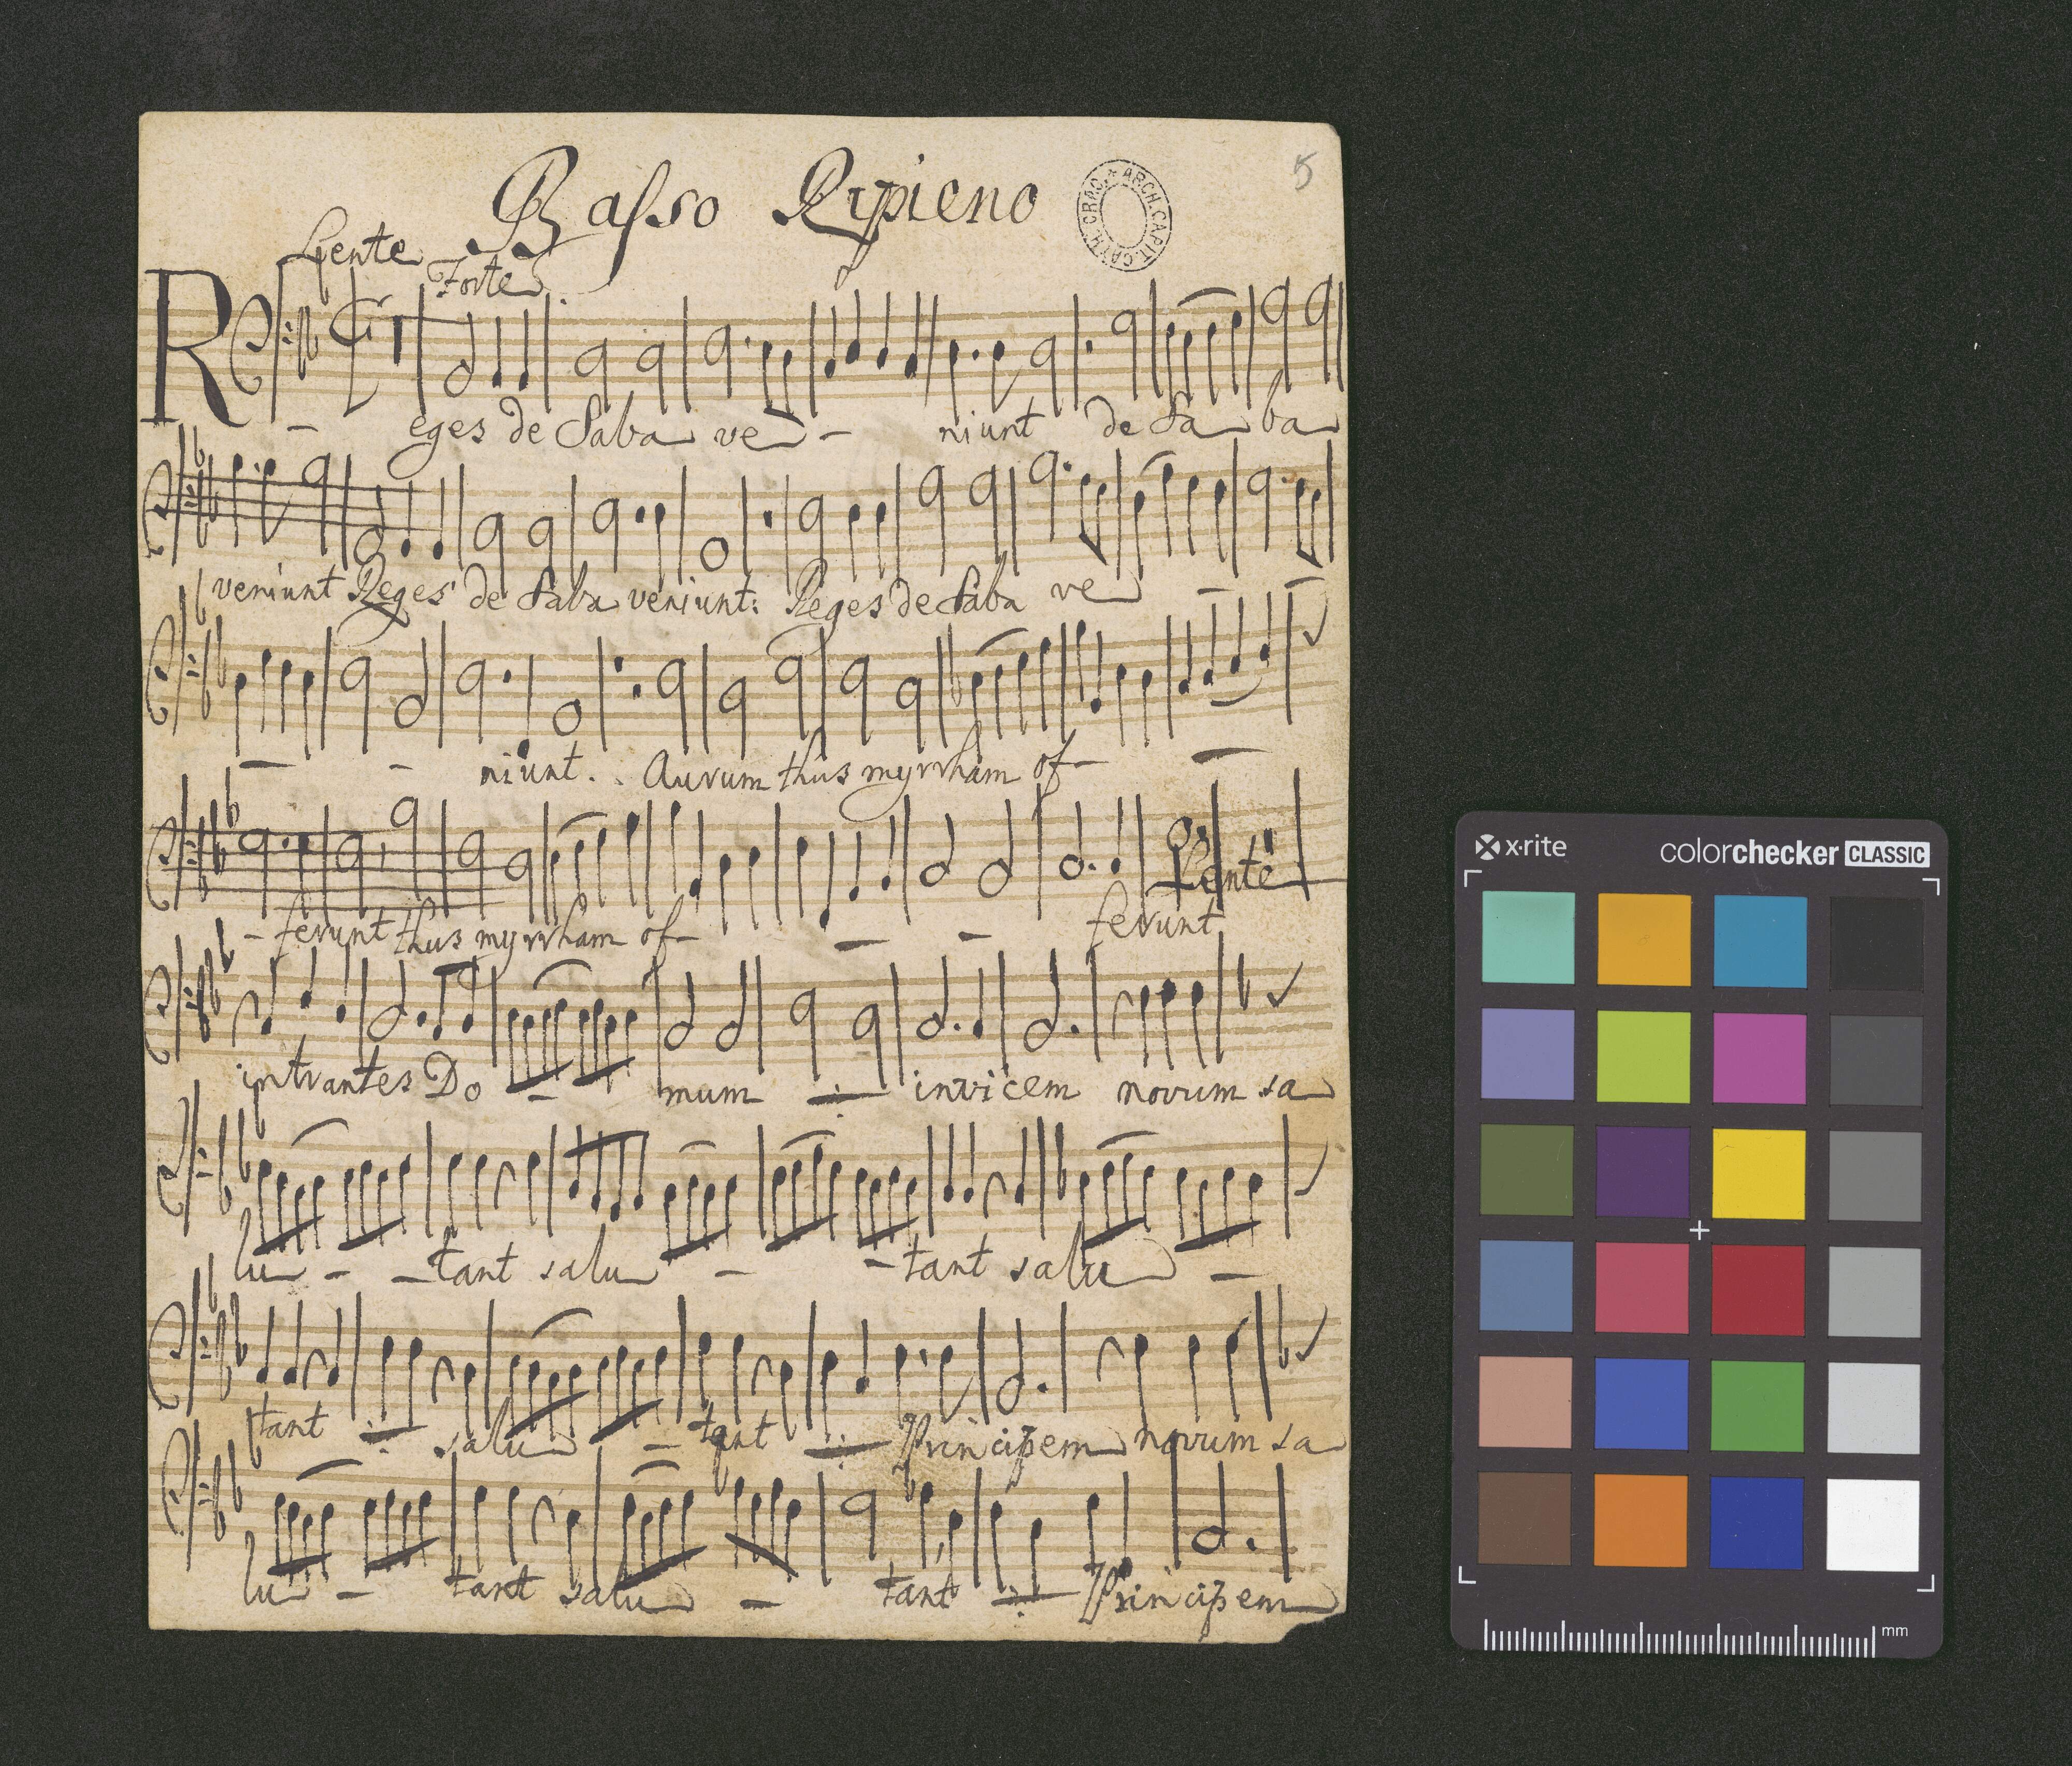 Basso Ripieno
5
ARCH. CAPIT. CATH. CRAC.
Lente
Forte
Reges de Saba ve - niunt de Saba
veniunt Reges de Saba veniunt: Reges de Saba ve
- - niunt. Aurum thus myrrham of -
- ferunt thus myrrham of - - - ferunt
Lente
intrantes Do - mum invicem novum sa
lu - - tant salu - - tant salu -
tant salu - tant Principem novum sa
lu - tant salu - tant Principem
x-rite
colorchecker CLASSIC
mm